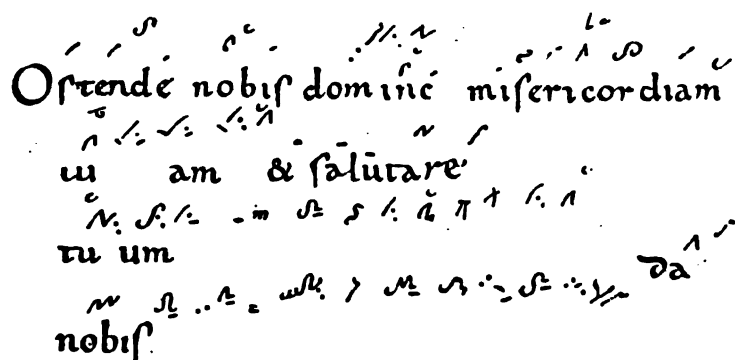 Ostende nobis domine misericordiam
tu am & salutare
tu um da
nobis.